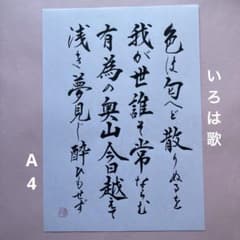 いろは歌
色は匂へど散りぬるを
我が世誰そ常ならむ
有為の奥山今日越えて
浅き夢見し酔ひもせず
A4